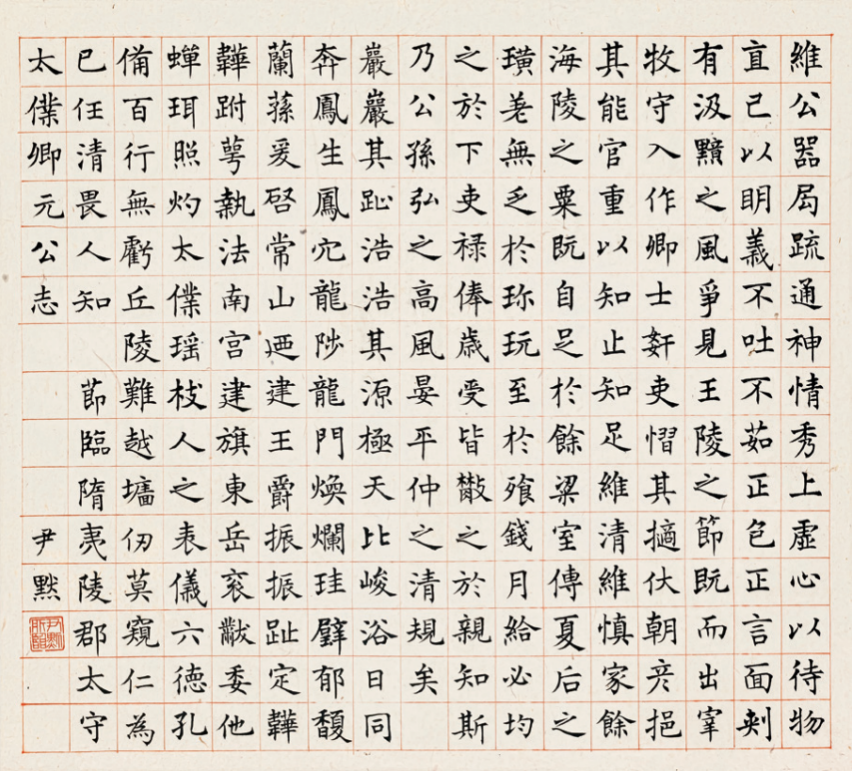 維公器局疏通神情秀上虛心以待物
直己以明義不吐不茹正色正言面刺
有汲黯之風爭見王陵之節既而出宰
牧守入作卿士姧吏慴其擿伏朝彥挹
其能官重以知止知足維清維慎家餘
海陵之粟既自足於餘粱室傳夏后之
璜羌無乏於珎玩至於飱錢月給必均
之於下吏禄俸歳受皆散之於親知斯
乃公孫弘之高風晏平仲之清規矣
巖巖其趾浩浩其源極天比峻浴日同
奔鳳生鳳穴龍陟龍門煥爛珪璧郁馥
蘭蓀爰啓常山迺建王爵振振趾定韡
韡跗萼執法南宮建旗東岳袞黻委他
蟬珥照灼太僕瑶枝人之表儀六徳孔
備百行無虧丘陵難越墻仞莫窺仁為
已任清畏人知 節臨隋夷陵郡太守
太僕卿元公志 尹默